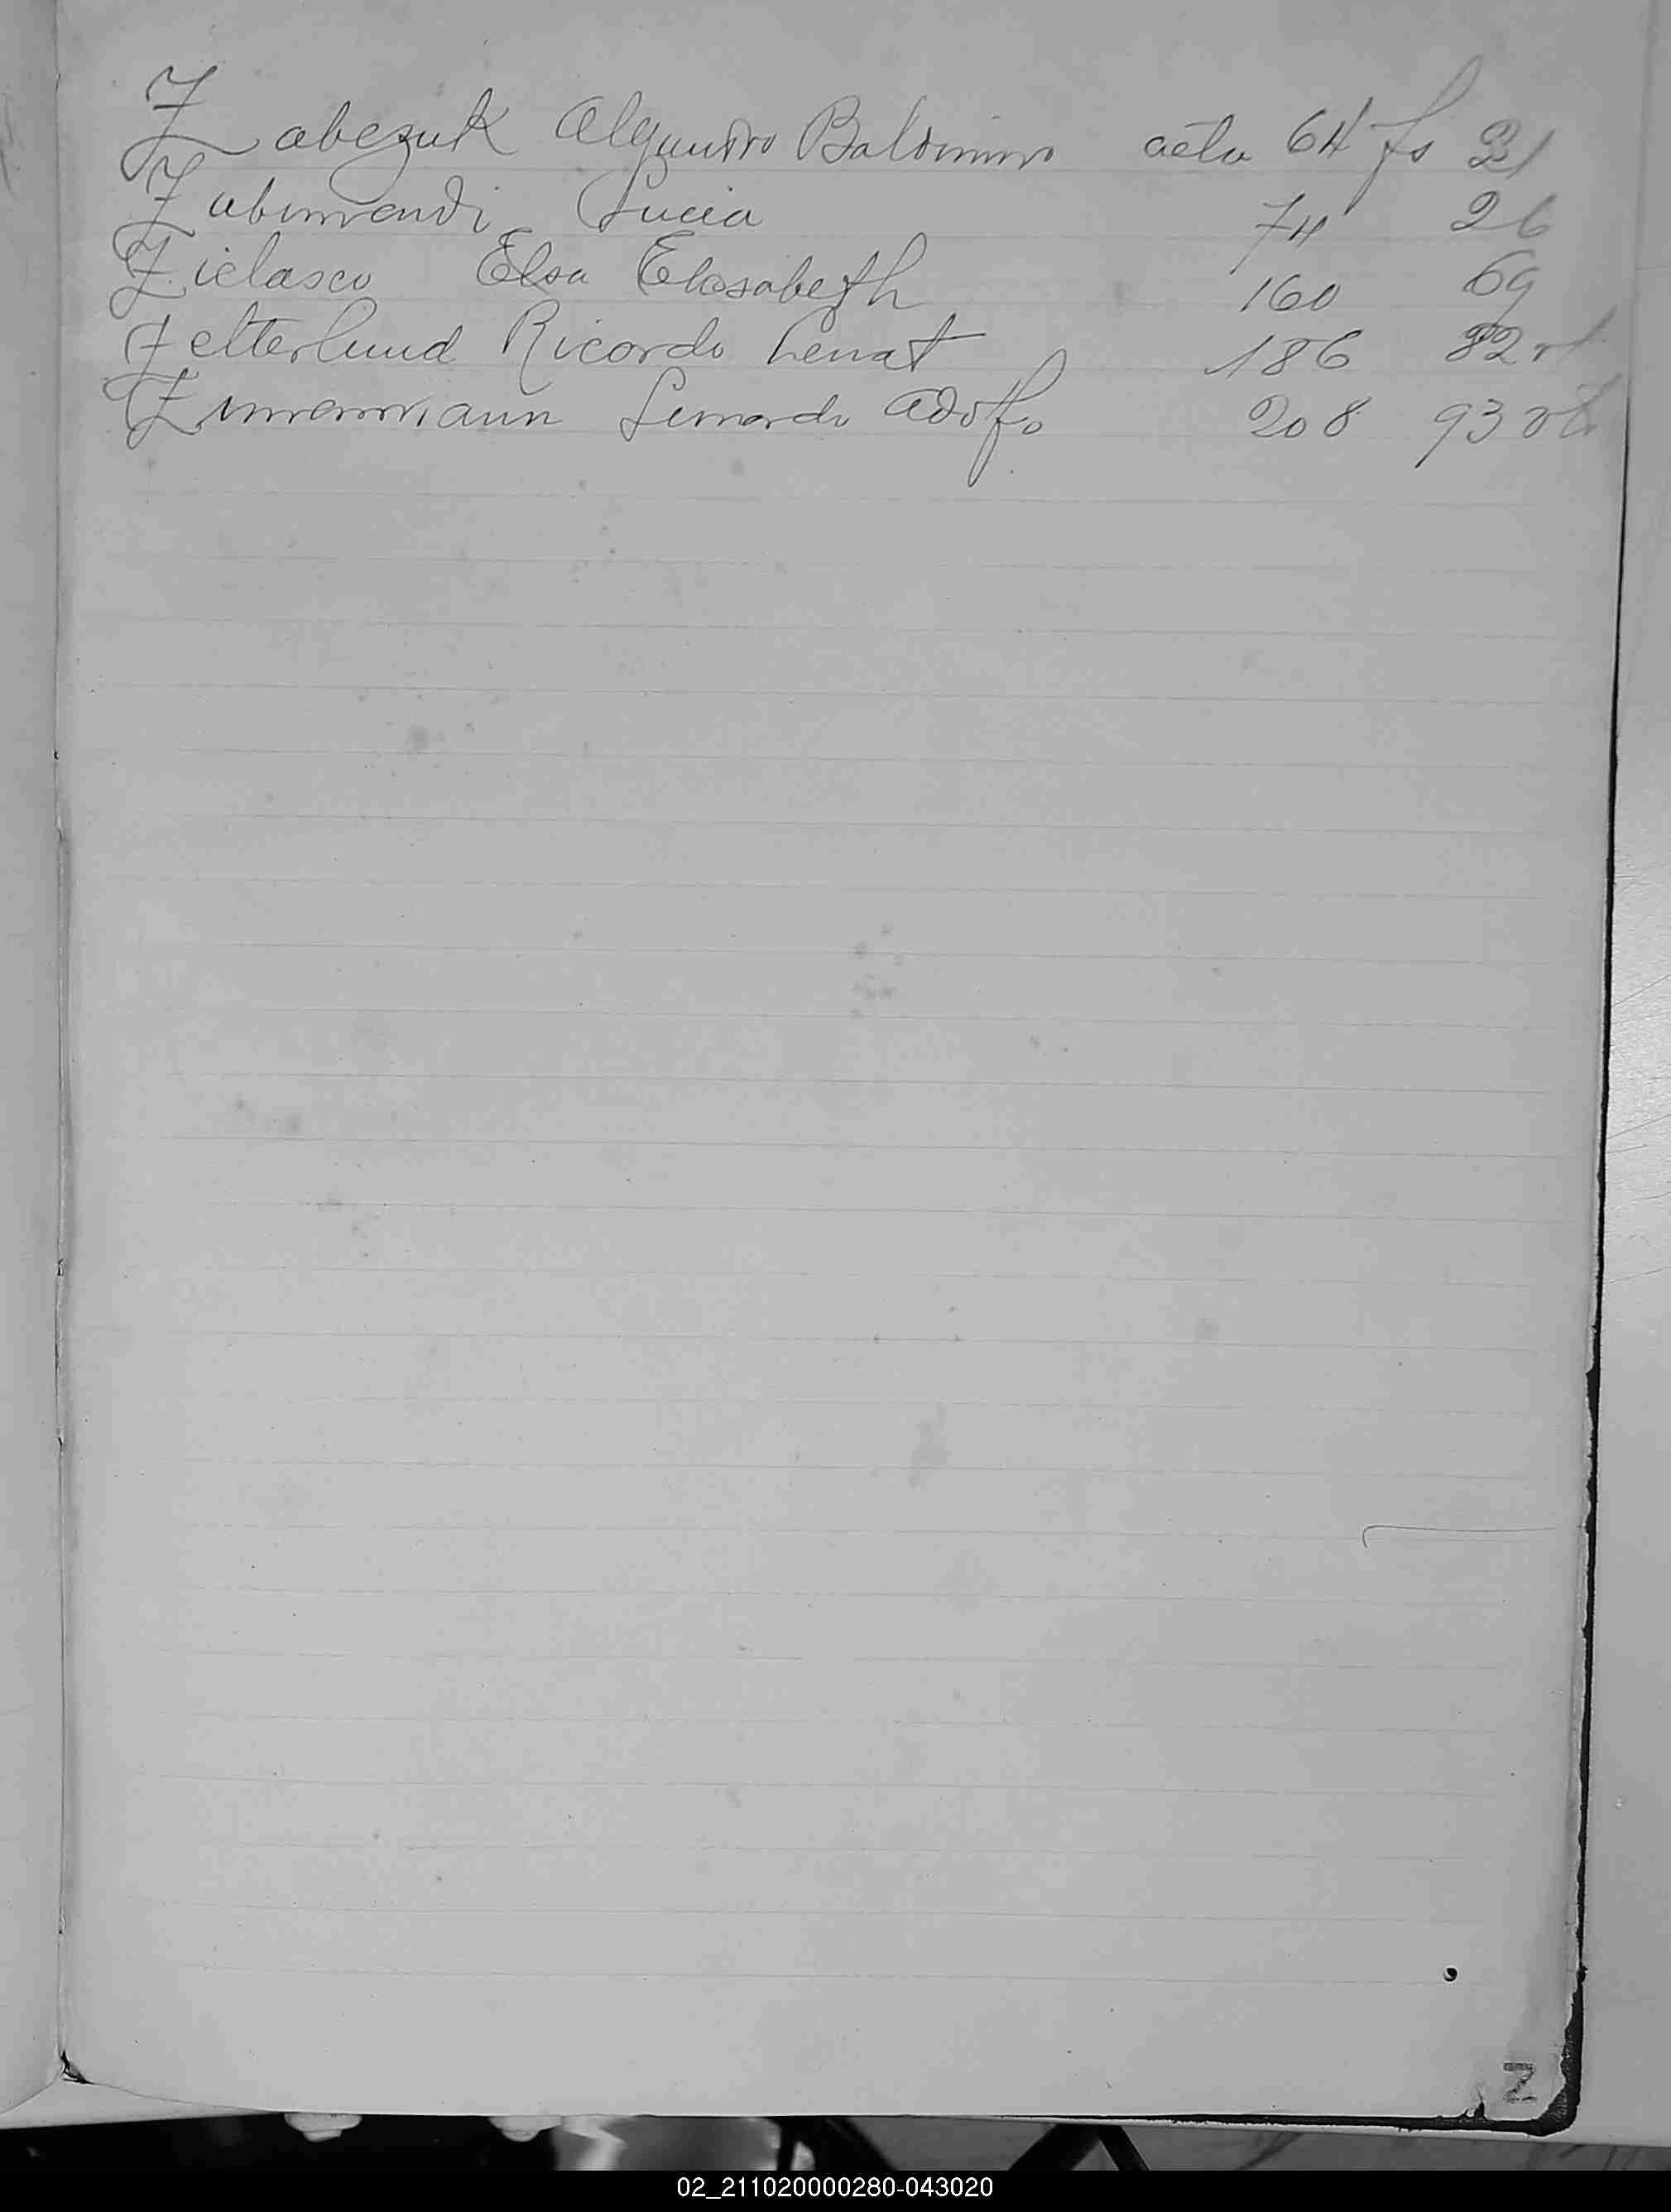 Zabczuk Alejandro Baldomiro acta 64 fs 21
Zubimendi Lucia 74 26
Zielasco Elsa Elisabeth 160 69
Zetterlund Ricardo Lenat 186 82 vt
Zimmermann Leonardo Adolfo 208 93 vt
Z
02_211020000280-043020